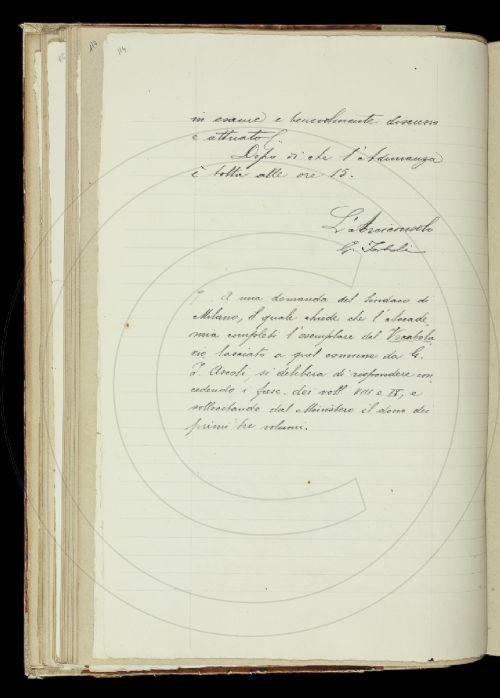 114
in esame e benevolmente discusso
e attuato.
Dopo di che l'Adunanza
è tolta alle ore 15.
L'Arciconsolo
G. Tortoli
A una domanda del Sindaco di
Milano, il quale chiede che l'Accade
mia completi l'esemplare del Vocabola
rio lasciato a quel comune da G.
I. Ascoli, si delibera di rispondere con
cedendo i fasc. dei voll. VIII e IX, e
sollecitando dal Ministero il dono dei
primi tre volumi.